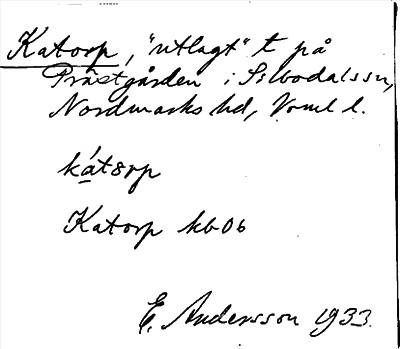 Katorp, "utlagt" t på
Prästgården i Silbodals sn,
Nordmarks hd, Vrml l.
kátorp
Katorp kb 06
E. Andersson 1933.